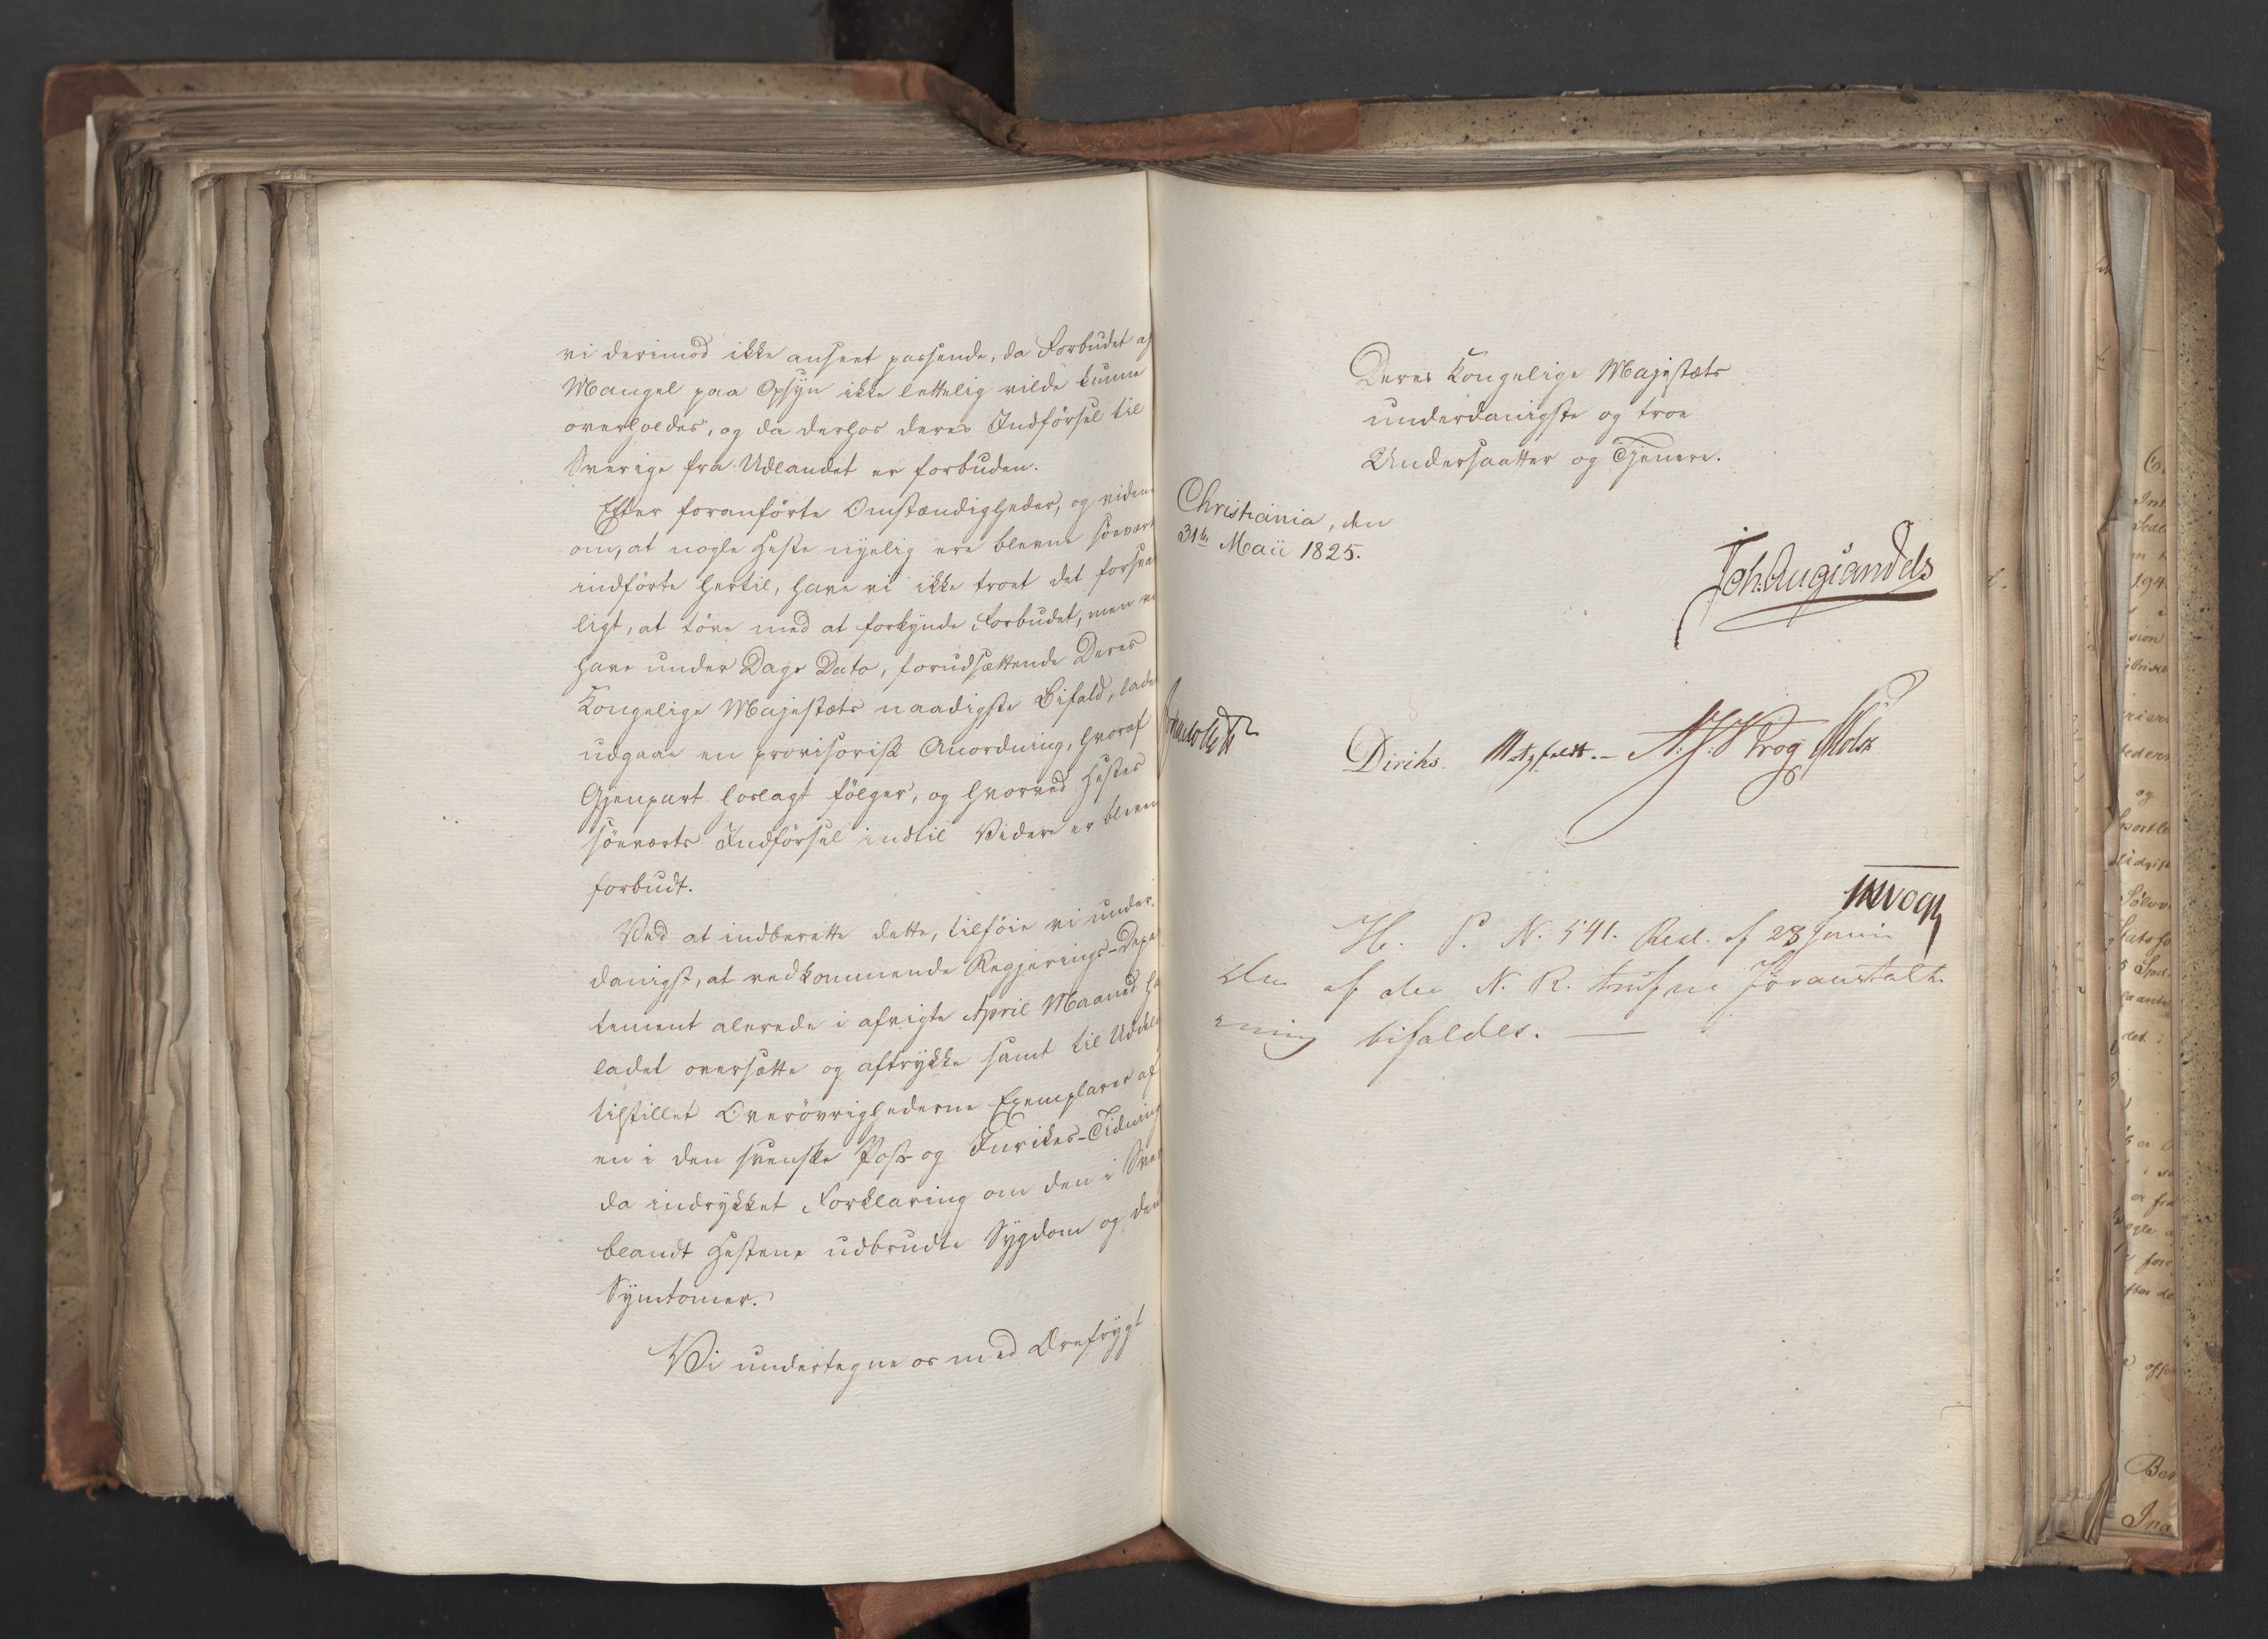 vi derimod ikke anseet passende, da Forbudet af
Mangel paa Opsyn ikke lettelig vilde kunne
overholdes, og da derhos deres Indförsel til
Sverige fra Udlandet er forbuden.
Efter foranförte Omstændigheder, og viden
om, at nogle Heste nyelig ere blevne söevært
indförte hertil, have vi ikke troet det forsva
ligt, at töve med at forkynde Forbudet, men vi
have under Dags Dato, forudsættende Deres
Kongelige Majestæts naadigste Bifald, lade
udgaae en provisorisk Anordning, hvoraf
Gjenpart hoslagt fölger, og hvorved Hestes
söeværts Indförsel indtil Videre er bleven
forbudt.
Ved at indberette dette, tilföie vi under-
danigst, at vedkommende Regjerings-Depar
tement alerede i afvigte April Maaned ha
ladet oversætte og aftrykke samt til Uddel
tilstillet Overövrighederne Exemplarer af
en i den svenske Post og Inrikes-Tidning
da indrykket Forklaring om den i Sver
blandt Hestene udbrudte Sygdom og den
Symtomer.
Vi undertegne os med Ærefrygt
Deres Kongelige Majestæts
underdanigste og troe
Undersaatter og Tjenere.
Christiania, den
31te Maii 1825.
Joh. Aug Sandels
Diriks. Motzfeldt.- Krog Holst
JHVogt
H. P. N. 541. Resl. af 28 Junii
Den af den N. R. trufne Foranstalt-
ning bifaldes. —